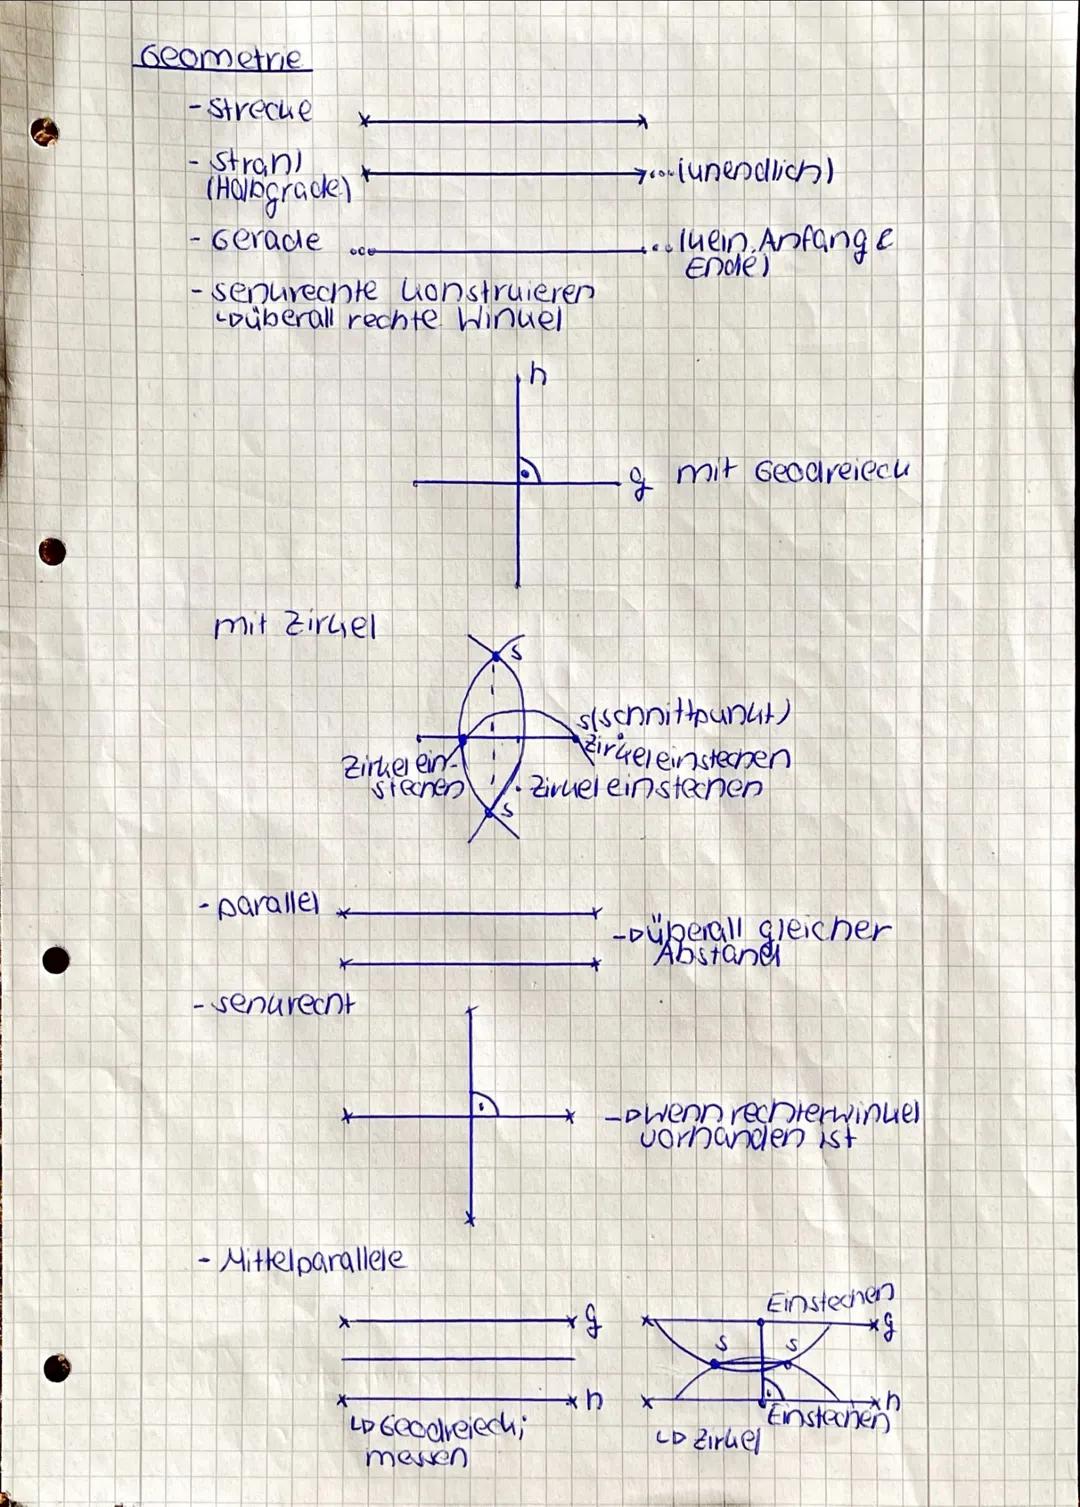 Geometrie
- Strecke
- Strahl ...(unendlich)
(Halbgrade)
- Gerade ... ...(kein Anfang &
Ende)
- senkrechte konstruieren
↳ überall rechte Winkel
h
g mit Geodreieck
mit Zirkel
S
S(Schnittpunkt)
Zirkel einstechen
Zirkel ein-
stechen
Zirkel einstechen
S
- parallel
→ überall gleicher
Abstand
- senkrecht
→ wenn rechterwinkel
vorhanden ist
- Mittelparallele
Einstechen
g
g
S S
h
h
Einstechen
↳ Geodreieck;
messen
↳ Zirkel